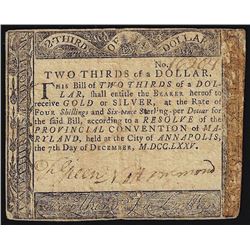 2-THIRDS OF A DOLLAR
No.
TWO THIRDS of a DOLLAR.
THIS Bill of TWO THIRDS of a DOL-
LAR, shall entitle the BEARER hereof to
receive GOLD or SILVER, at the Rate of
FOUR Shillings and Six-pence Sterling per Dollar for
the said Bill, according to a RESOLVE of the
PROVINCIAL CONVENTION of MA-
RYLAND, held at the City of ANNAPOLIS,
the 7th Day of DECEMBER, M,DCC,LXXV.
Green Hammond